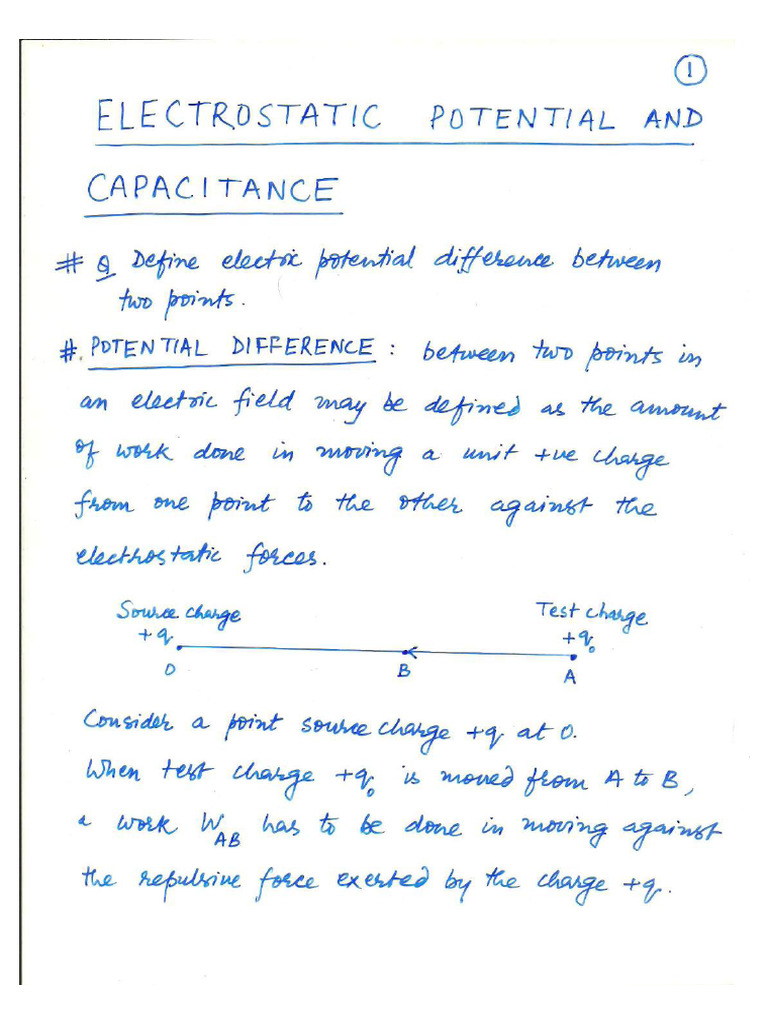 1
ELECTROSTATIC POTENTIAL AND
CAPACITANCE
# Q Define electric potential difference between
two points.
#. POTENTIAL DIFFERENCE : between two points in
an electric field may be defined as the amount
of work done in moving a unit +ve charge
from one point to the other against the
electrostatic forces.
Source charge Test charge
+q +q₀
O B A
Consider a point source charge +q at O.
When test charge +q₀ is moved from A to B,
a work W_AB has to be done in moving against
the repulsive force exerted by the charge +q.